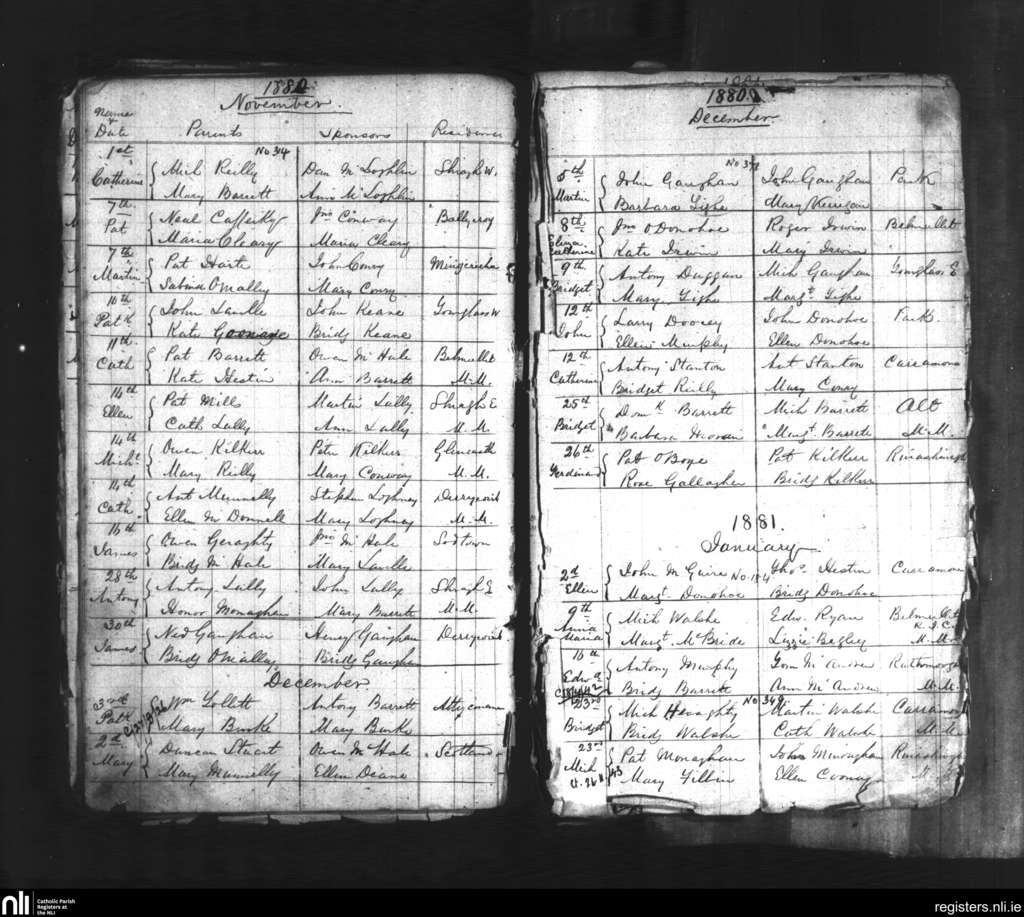 1880
November
Name & Date Parents Sponsors Residence
1st Catherine
Mich Reilly Dan McLoghlin Shragh W.
Mary Barrett Ann McLoghlin
No 314
7th Pat
Neal Cafferky Jno Conway Ballycroy
Maria Cleary Maria Cleary
7th Martin
Pat Harte John Conry
Sabina OMalley Mary Conry
10th Patk
John Lavelle John Keane Gowglass W
Kate Bridg Keane
11th Cath
Pat Barrett Owen McHale Belmullet
Kate Hestin Ann Barrett M.M.
14th Ellen
Pat Mills Martin Lally Shragh E
Cath Lally Ann Lally M.M.
14th Michl
Owen Kilker Peter Kilker Glencastle
Mary Reilly Mary Conway M.M.
14th Cath
Ant Munnelly Stephen Loghney
Ellen McDonnell Mary Loghney M.M.
16th James
Owen Geraghty Jno McHale Sodtown
Bridg McHale Mary Lavelle
28th Antony
Antony Lally John Lally Shragh E
Honor Monaghan Mary Barrett M.M.
30th James
Ned Gaughan Henry Gaughan
Bridg OMalley Bridg Gaughan
December
Patk
Wm Follett Antony Barrett
Mary Burke Mary Burke
2nd Mary
Duncan Stuart Owen McHale Scotland
Mary Munnelly Ellen Deane
1880
December
No 317
5th Martin
John Gaughan John Gaughan Park
Barbara Tighe Mary Kerrigan
8th Eliza Catherine
Jno ODonohoe Roger Irwin Belmullet
Kate Irwin Mary Irwin
9th Bridget
Antony Duggan Mich Gaughan Gowglass E
Mary Tighe Margt Tighe
12th John
Larry Doocey John Donohoe Park
Ellen Murphy Ellen Donohoe
12th Catherine
Antony Stanton Ant Stanton Carramore
Bridget Reilly Mary Conry
25th Bridget
Domk Barrett Mich Barrett Alt
Barbara Margt Barrett M.M.
26th Ferdinand
Pat OBoye Pat Kilker
Rose Gallagher Bridg Kilker
1881.
January
2d Ellen
John McGuire Thos Hestin Carramore
Margt Donohoe Bridg Donohoe
9th Anna Maria
Mich Walshe Edw. Ryan Belmullet
Margt McBride Lizzie Begley M.M.
16th Edwd
Antony Murphy McAndrew
Bridg Barrett Ann McAndrew M.M.
23rd Bridget
Mich Heraghty Martin Walsh Carramore
Bridg Walshe Cath Walsh M.M.
23rd Mich
Pat Monaghan John Minoughan
Mary Filbin Ellen Coonay
nli Catholic Parish
Registers at
the NLI
registers.nli.ie